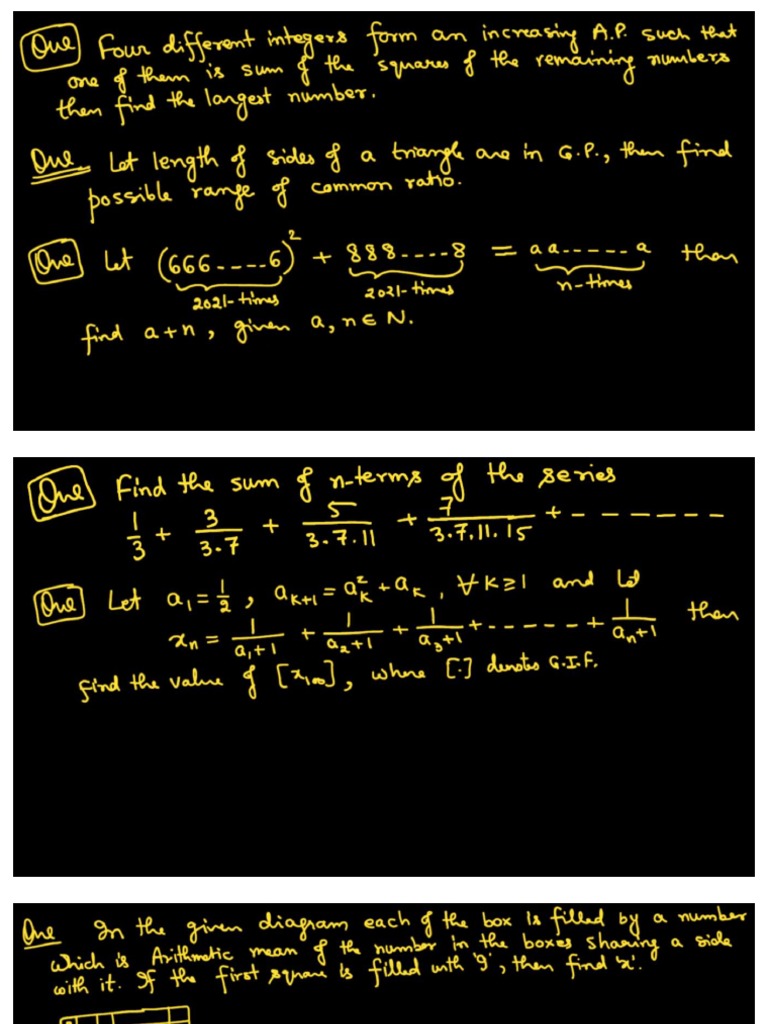 Que Four different integers form an increasing A.P. such that
one of them is sum of the squares of the remaining numbers
then find the largest number.
Que. Let length of sides of a triangle are in G.P., then find
possible range of common ratio.
Que Let (666----6)² + 888----8 = aa-----a then
2021-times 2021-times n-times
find a+n, given a, n ∈ N.
Que Find the sum of n-terms of the series
1/3 + 3/3.7 + 5/3.7.11 + 7/3.7.11.15 + -------
Que Let a₁ = 1/2, aₖ₊₁ = aₖ² + aₖ, ∀ k ≥ 1 and Let
xₙ = 1/a₁+1 + 1/a₂+1 + 1/a₃+1 + ----- + 1/aₙ+1 then
find the value of [x₁₀₀], where [.] denotes G.I.F.
Que In the given diagram each of the box is filled by a number
which is Arithmatic mean of the number in the boxes sharing a side
with it. If the first square is filled with '9', then find 'x'.